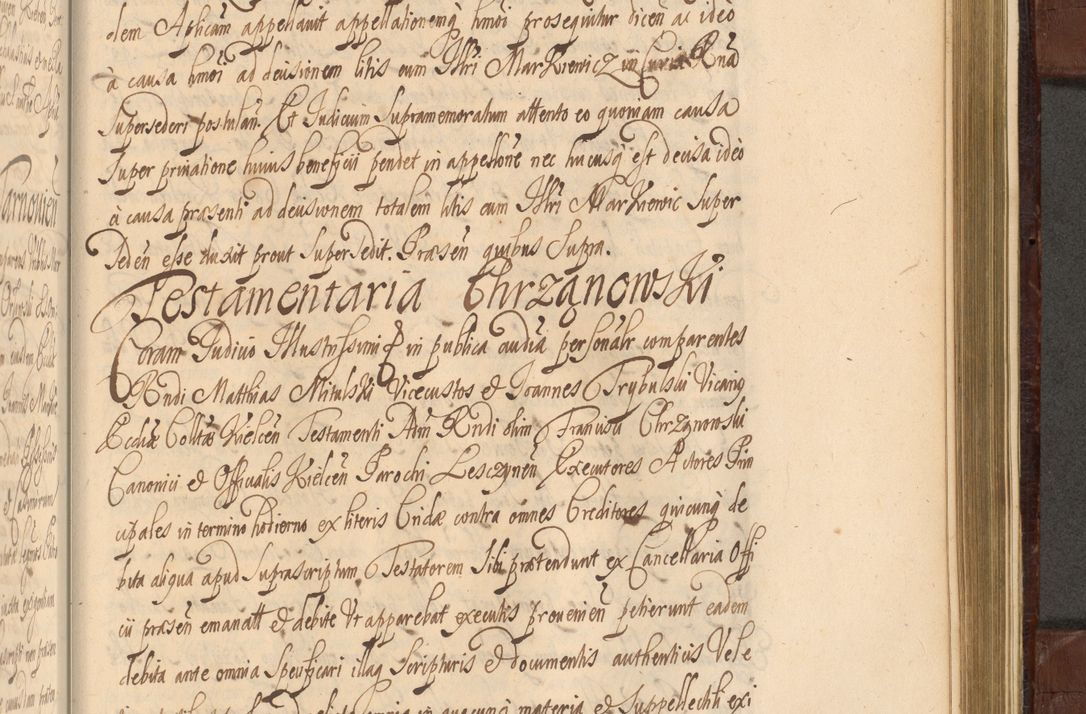 dem Aplicam appellavit appellationemq hmoi prosequitur dicen ac ideo
à causa hmoi ad decisionem litis cum Illri Markiewicz in Curia Rna
supersederi postulan. Et Iudicium supramemoratum attento eo quoniam causa
super privatione huius beneficii pendet in appellone nec hucusq est decisa ideo
à causa præsenti ad decisionem totalem litis cum Illri Markiewic super
seden esse duxit prout supersedit. Præsen quibus supra.
Testamentaria Chrzanowski
Coram Iudicio Illustrissimi & in publica audia personalr comparentes
Rndi Matthias Mitulski Vicecustos et Joannes Trybulski Vicarius
Ecclæ Colltæ Kielcen Testamenti Adm Rndi olim Francisci Chrzanowski
Canonici et Officialis Kielcen Parochi Lesczynen Executores Actores Prin
cipales in termino hodierno ex literis Cridæ contra omnes Creditores quicunq de
bita aliqua apud suprascriptum Testatorem sibi prætendunt ex Cancellaria Offi
cii præsen emanatt et debite ut apparebat executis provenien petierunt eadem
debita ante omnia specificari illaq scripturis et documentis authenticis vel e
omnia in quacunq materia et suppellectili exi